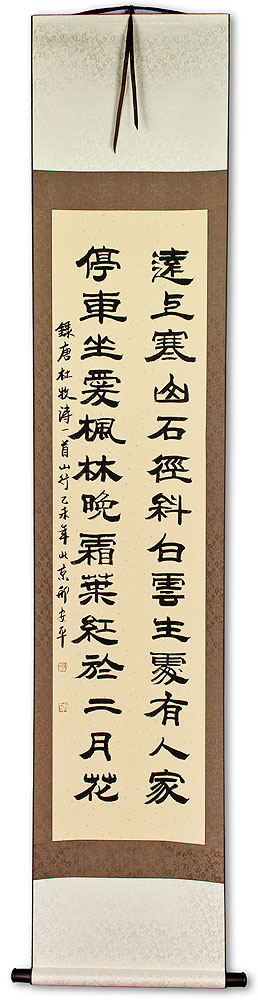 遠上寒山石徑斜白雲生處有人家
停車坐愛楓林晚霜葉紅於二月花
錄唐杜牧詩一首山行乙未年北京邢安平